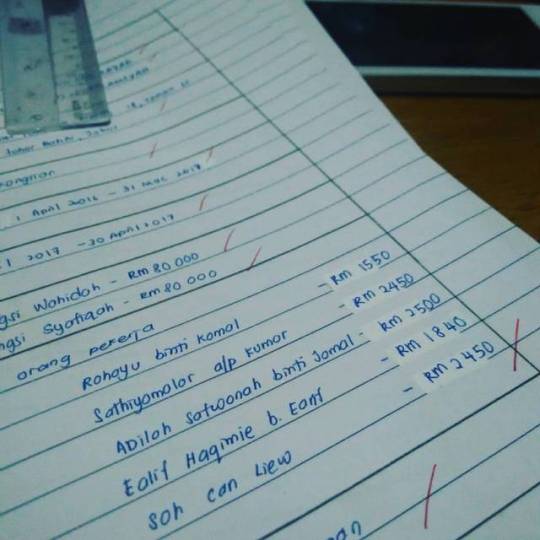 Johor Bahru, Johor
1 April 2016 - 31 Mac 2017
2017 - 30 April 2017
Wahidah - RM 80 000
Syafiqah - RM 80 000
orang pekerja
Rohayu binti Kamal - RM 1550
Sathiyamalar a/p Kumar - RM 2450
Adilah Satwoonah binti Jamal - RM 2500
Ealif Haqimie b. Eanf - RM 1840
Soh Can Liew - RM 2450